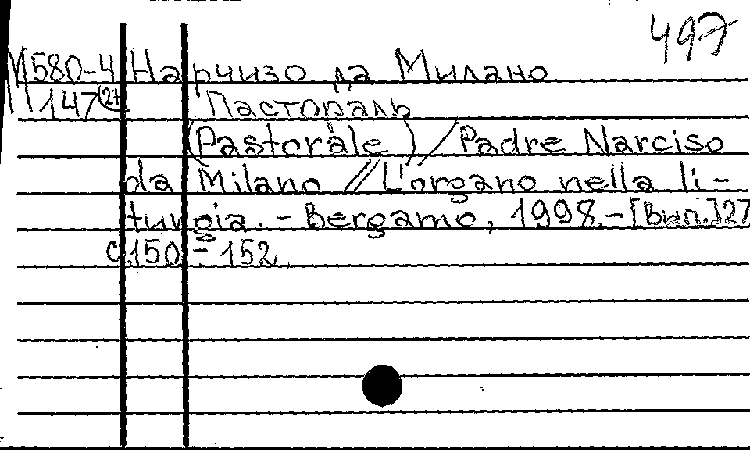 497
М580-4 Нарчизо да Милано
М147(27) Пастораль
(Pastorale) / Padre Narciso
da Milano // L'organo nella li-
turgia. - Bergamo, 1998. - [Вып.] 27
с. 150 - 152.